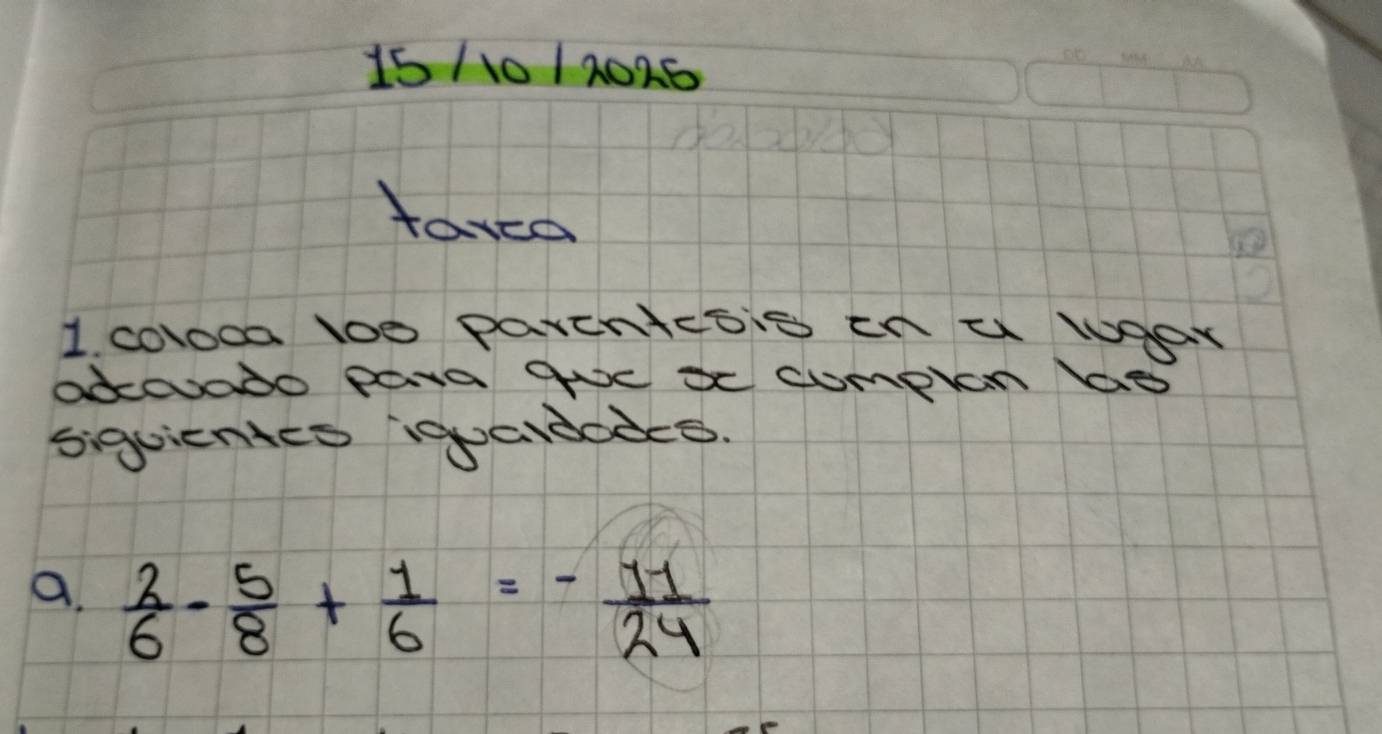 15/10/2025
tarea
1. coloca los parentesis en el lugar
adecuado para que se cumplan las
siguientes igualdades.
a. 2/6 - 5/8 + 1/6 = - 11/24